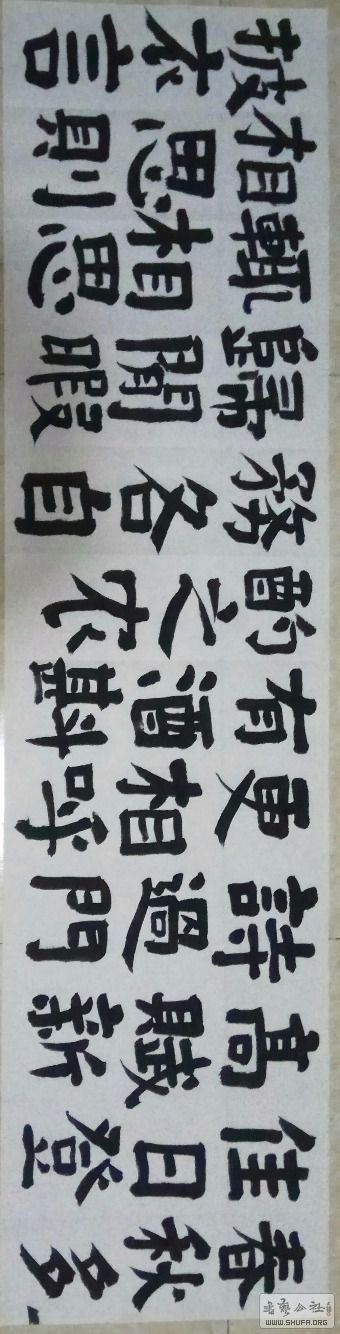 春秋多
佳日登
高賦新
詩過門
更相呼
有酒斟
酌之农
務各自
歸閒暇
輒相思
相思則
披衣言
书艺公社
WWW.SHUFA.ORG